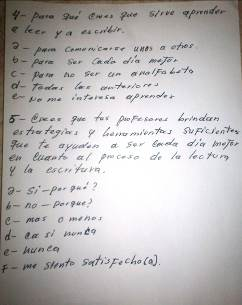 4- para Qué Crees que sirve aprender
a leer y a escribir.
a- para comunicarse unos a otros.
b- para ser Cada día mejor
c- para no ser un analfabeto
d- Todas las anteriores
e- no me interesa aprender
5- Crees que tus profesores brindan
estrategias y herramientas suficientes
que te ayuden a ser Cada día mejor
en cuanto al proceso de la lectura
y la escritura.
a- si- por qué?
b- no- porque?
c- mas o menos
d- ca si nunca
e- nunca
f- me siento satisfecho(a).